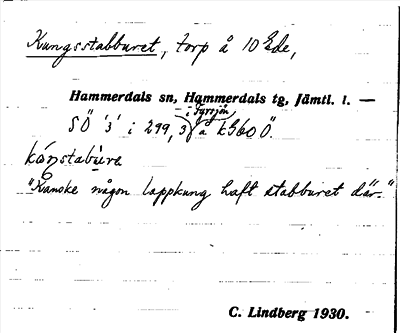 Kungsstabburet, torp å 10 Ede,
Hammerdals sn, Hammerdals tg, Jämtl. l. —
i Fyrsjön
SÖ '3' i 299,3 å k 560 Ö.
kónstabùrə
"Kanske någon lappkung haft stabburet där."
C. Lindberg 1930.